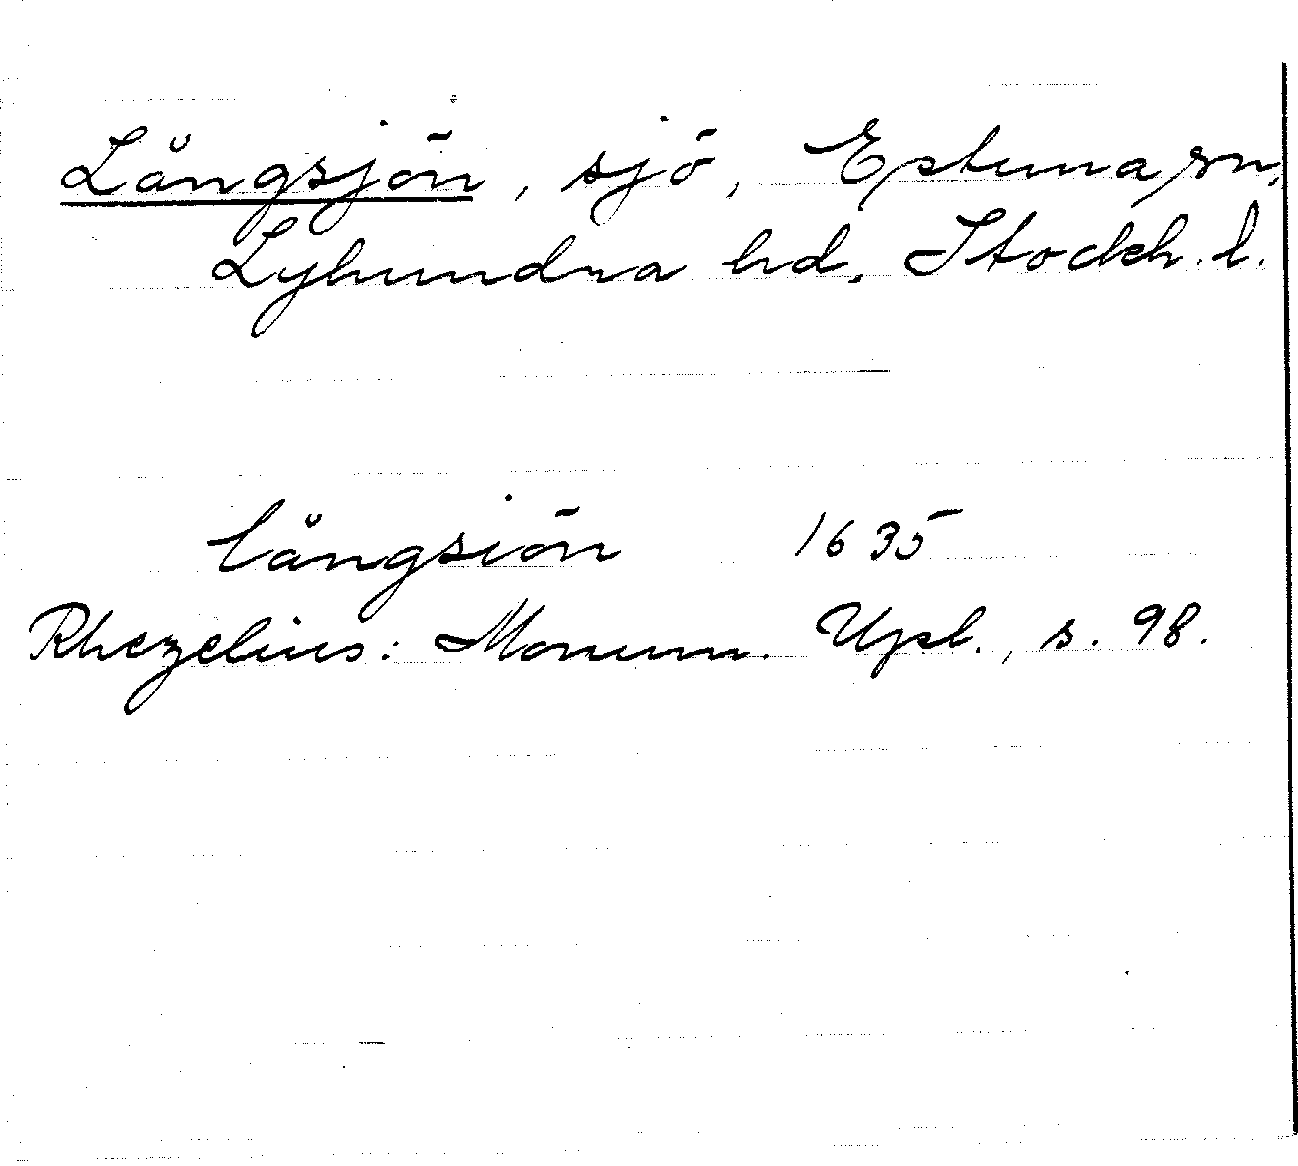 Långsjön, sjö, Estuna sn,
Lyhundra hd, Stockh. l.
långsiön 1635
Rhezelius: Monum. Upl., s. 98.